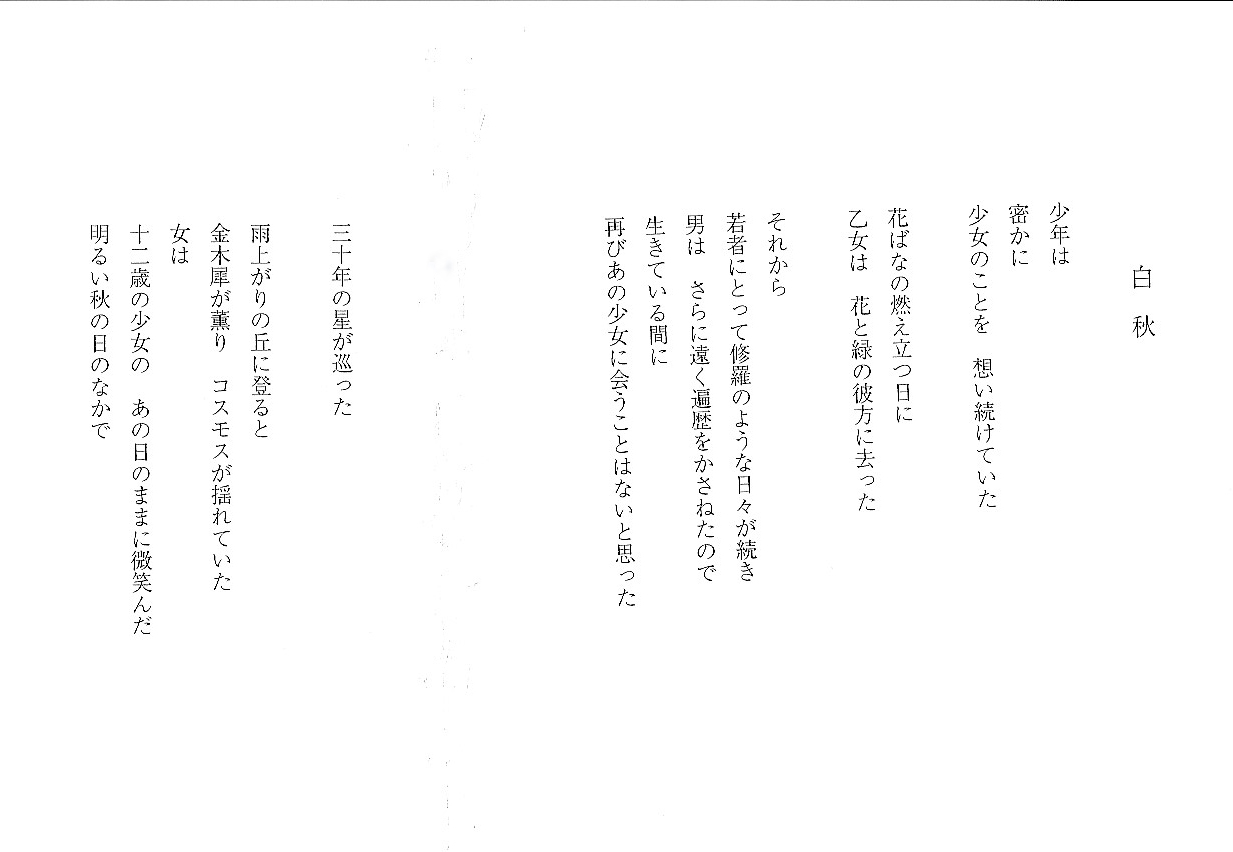 白秋
少年は
密かに
少女のことを　想い続けていた
花ばなの燃え立つ日に
乙女は　花と緑の彼方に去った
それから
若者にとって修羅のような日々が続き
男は　さらに遠く遍歴をかさねたので
生きている間に
再びあの少女に会うことはないと思った
三十年の星が巡った
雨上がりの丘に登ると
金木犀が薫り　コスモスが揺れていた
女は
十二歳の少女の　あの日のままに微笑んだ
明るい秋の日のなかで